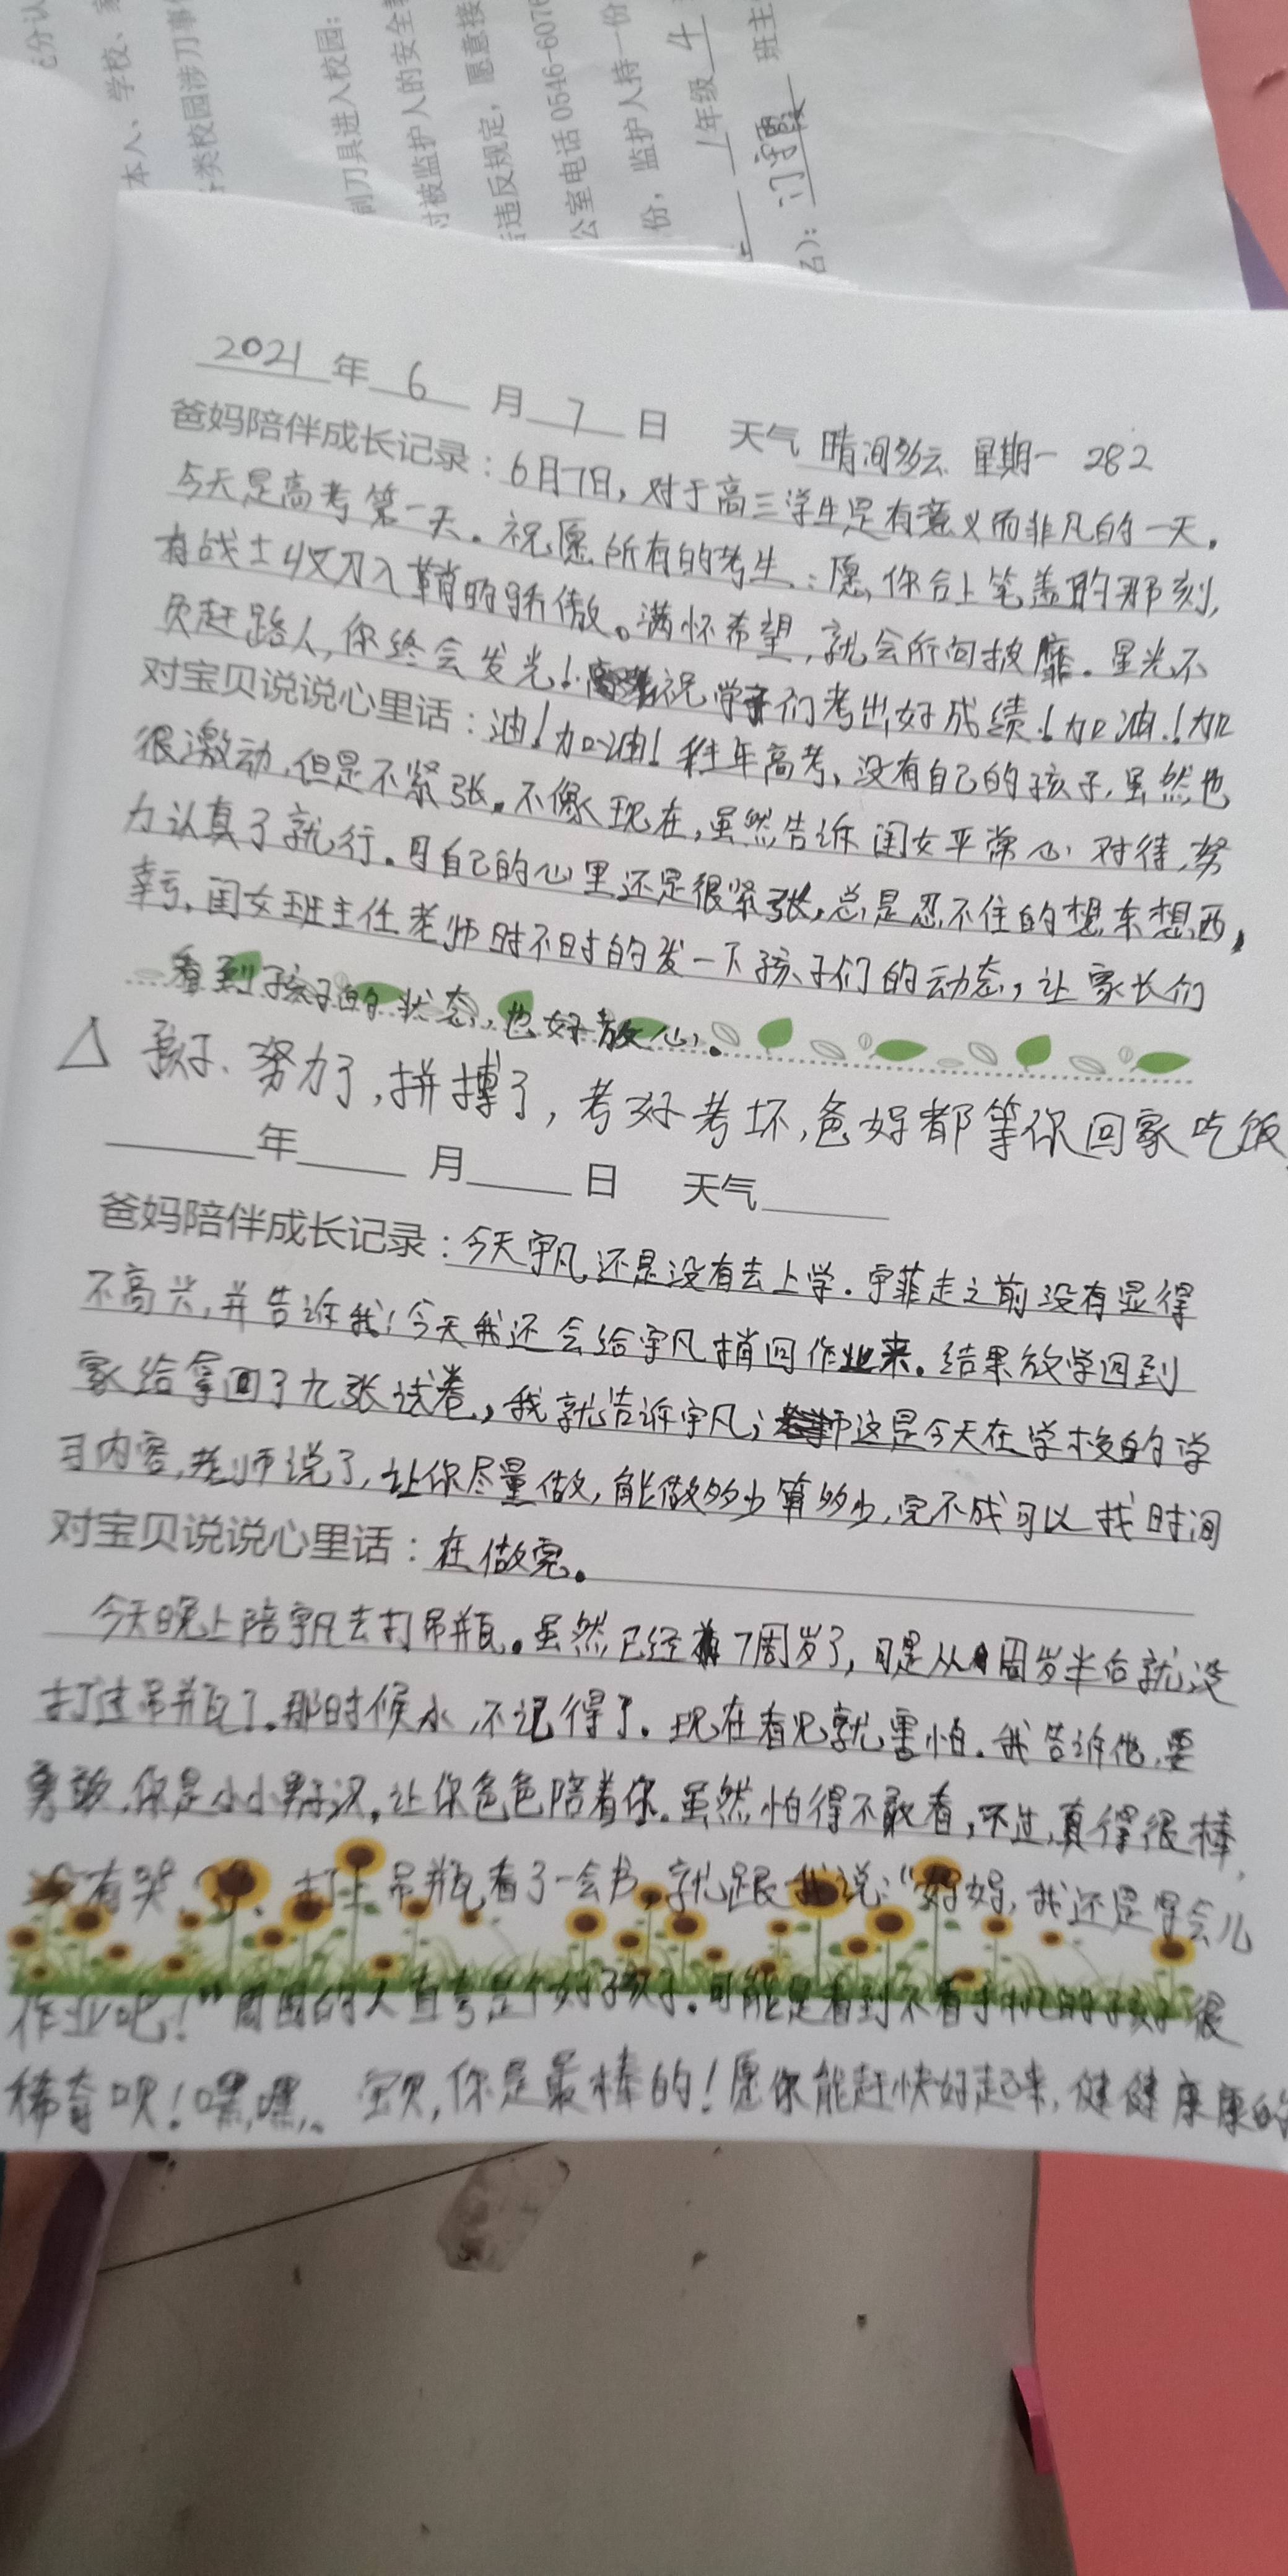 本人、学校、家
类校园涉刀事
制刀具进入校园:
对被监护人的安全
违反规定，愿意接
公室电话 0546-6076
份，监护人持一份
1年级 4 班主
名）：
2021 年 6 月 7 日 天气 晴间多云 星期一 282
爸妈陪伴成长记录：6月7日，对于高三学生是有意义而非凡的一天。
今天是高考第一天。祝愿所有的考生：愿，你合上笔盖的那刻，
有战士收刀入鞘的骄傲。满怀希望，就会所向披靡。星光不
负赶路人，你终会发光！祝学子们考出好成绩！加油！加
对宝贝说说心里话：油！加油！往年高考，没有自己的孩子，虽然也
很激动，但是不紧张。不像现在，虽然告诉闺女平常心对待，努
力认真了就行。可自己的心里还是很紧张，总是忍不住的想东想西，
幸亏，闺女班主任老师时不时的发一下孩子们的动态，让家长们
看到孩子的状态，也好放心。
△ 孩子、努力了，拼搏了，考好考坏，爸妈都等你回家吃饭
年 月 日 天气
爸妈陪伴成长记录：今天宇凡还是没有去上学。宇菲走之前没有显得
不高兴，并告诉我！今天我还会给宇凡捎回作业来。结果放学回到
家给拿回了九张试卷，我就告诉宇凡；这是今天在学校的学
习内容，老师说了，让你尽量做，能做多少算多少，完不成可以找时间
对宝贝说说心里话：在做完。
今天晚上陪宇凡去打吊瓶。虽然已经7周岁了，可是从1周岁半后就没
打过吊瓶了。那时候小，不记得了。现在看见就害怕。我告诉他，要
勇敢，你是小小男子汉。让你爸爸陪着你。虽然怕得不敢看，不过，真得很棒，
没有哭，打上吊瓶看了一会书，就跟我说：“妈妈，我还是写会儿
作业吧！”周围的人直夸是个好孩子。可能是看到不看手机的孩子很
稀奇呗！嘿，嘿，、宝贝，你是最棒的！愿你能赶快好起来，健健康康的